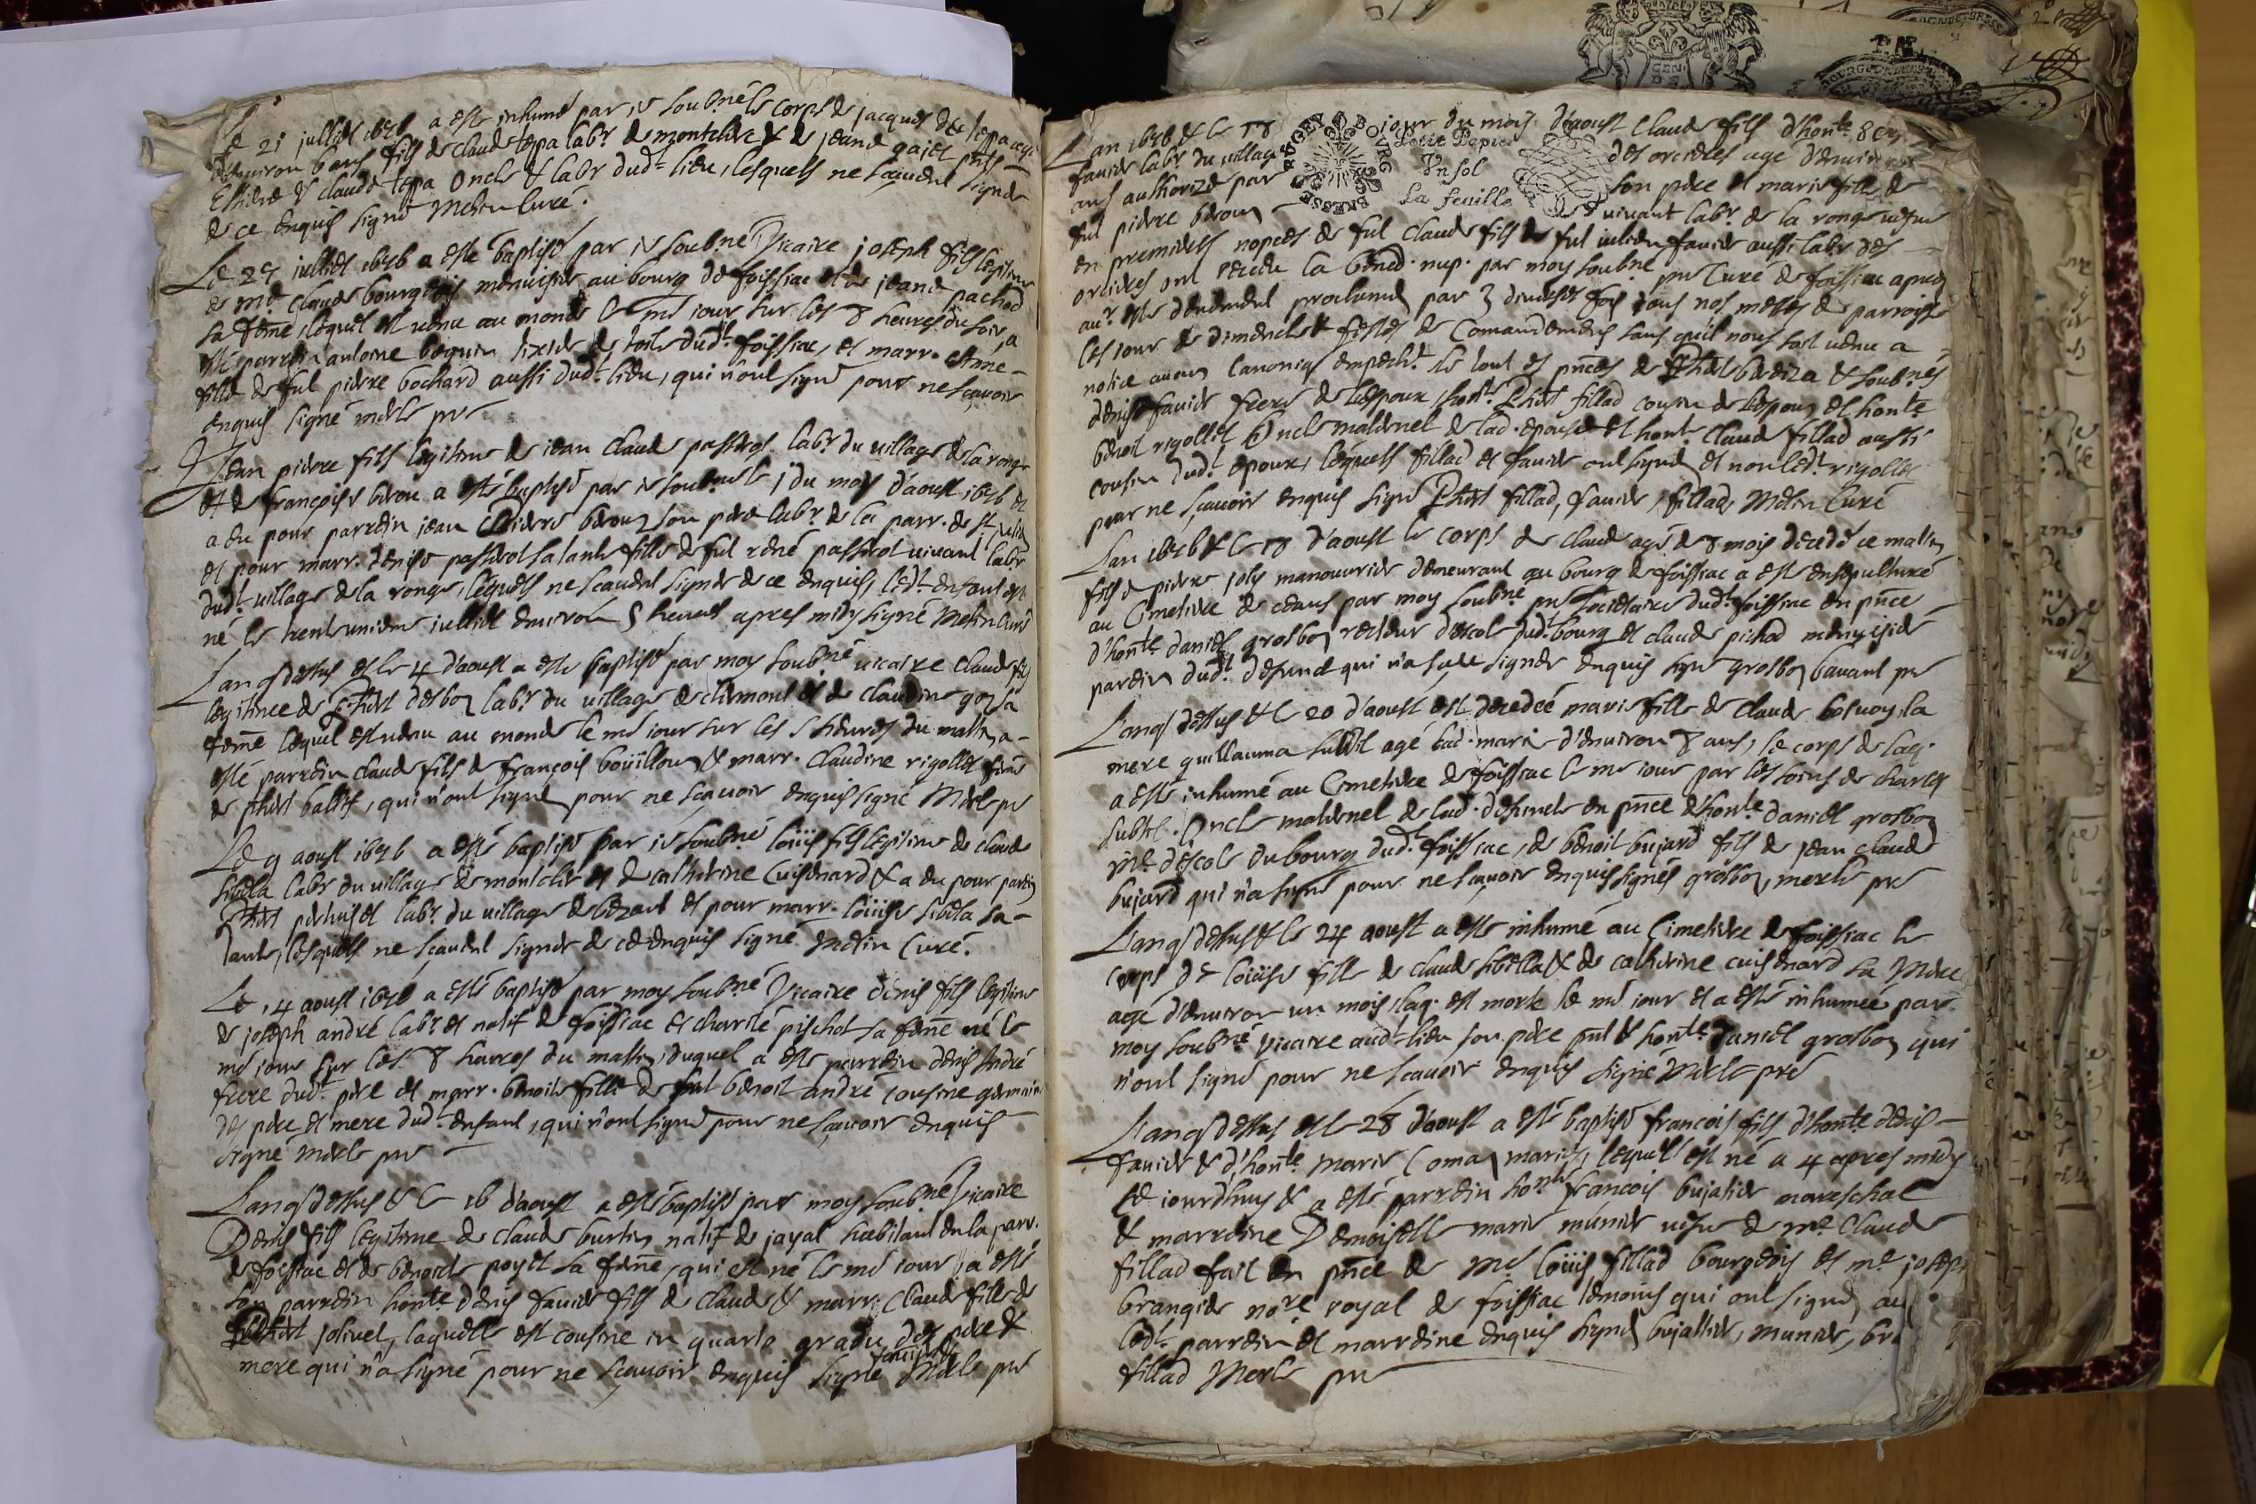 Le 21 juillet 1696 a esté inhumé par je soubné le corps de jacques
d'environ 6 ans fils de claude teppa labr de montclair & de jeane gajet
& claude teppa oncle & labr dudt lieu, lesquels ne scavent signer
de ce enquis signé Metin Curé.
Le 29 juillet 1696 a esté baptisé par je soubné Vicaire joseph fils legitime
de me claude bourgeois menuisier au bourg de foissiac et de jeane pachod
sa feme, lequel est venu au monde le me jour sur les 8 heures du soir, a
esté parrein antoine bequin tixier de toile dudt foissiac, et marr. etienne
fille de fut pierre bochard aussi dudt lieu, qui n'ont signé pour ne scavoir
enquis signé merle pre
Jean pierre fils legitime de jean claude passerot labr du village de la ronge
et de françoise berou a estés baptisé par je soubné le j du mois d'aoust 1696 et
a eu pour parrein jean berou son labr de la parr. de St
et pour marr. denise passerot sa tante fille de fut rené passerot vivant labr
dudt village de la ronge, lesquels ne scavent signer de ce enquis, ledt enfant est
né le trente unieme juillet environ 5 heures apres midy signé Metin curé
L'an q dessus et le 4 d'aoust a esté baptisé par moy soubné vicaire claude fils
legitime de labr du village de clermont et de claudine goz sa
feme lequel est venu au monde le me jour sur les 5 heures du matin, a
esté parrein claude fils de françois boüillou & marr. claudine rigollet feme
de qui n'ont signé pour ne scavoir enquis signé Merle pr
Le 9 aoust 1696 a estés baptisé par je soubné loüis fils legitime de claude
sibella labr du village de montclair et de catherine Cuisenard & a eu pour parein
labr du village de bezant et pour marr. loüise sibella sa
tante, lesquels ne scavent signer de ce enquis signé Metin Curé.
Le 14 aoust 1696 a estés baptisé par moy soubné Vicaire denis fils legitime
de joseph andré labr et natif de foissiac et charité pichot sa feme né le
me jour sur les 8 heures du matin, duquel a esté parrein denis André
frere dudt pere et marr. benoite fille de fut benoit andré cousine germaine
des pere et mere dudt enfant, qui n'ont signé pour ne scavoir enquis
signé merle pre
L'an q dessus & le 16 d'aoust a esté baptisé par moy soubné Vicaire
Denis fils legitime de claude burtin natif de jayat habitant en la parr.
de foissiac et de benoite poyet sa feme, qui est né le me jour, a esté
son parrein honte denis favier fils de claude & marr. Claude fille de
jolivet, laquelle est cousine in quarto gradu des pere &
mere qui n'a signé pour ne scavoir enquis signé favier Merle pre
L'an 1696 & le 18 jour du mois d'aoust Claude fils d'honte
favier labr du village des orcieres age d'environ
ans authorizé par son pere et marie fille de
fut pierre berou vivant labr de la ronge vefve
en premieres nopces de fut Claude fils de fut julien favier aussi labr des
orcieres ont receu la bened. nup. par moy soubné pre Curé de foissiac apres
avr esté deuement proclamés par 3 diverses fois dans nos messes de parroisse
les jour de dimenche & festes de Comandemens sans quil nous soit venu a
notice aucun Canoniq empecht. le tout es pnces de & soubnés
denis favier frere de l'espoux, honte fillad cousin de l'espoux et honte
benoit rigollet oncle maternel de lad. epouse et honte Claude fillad aussi
cousin dudt epoux, lesquels fillad et favier ont signé et non ledt rigollet
pour ne scavoir enquis signé fillad, favier, fillad, Metin Curé
L'an 1696 & le 18 d'aoust le corps de claude agé de 8 mois decedé ce matin
fils de pierre joly manouvrier demeurant au bourg de foissiac a esté ensepulturé
au Cimetiere de ceans par moy soubné pre societaire dudt foissiac en pnce
d'honte daniel grosboz recteur d'escole dudt bourg et claude pichod menuisier
parrein dudt defunct qui n'a sceu signer enquis signé grosboz bavant pre
L'an q dessus & le 20 d'aoust est decedée marie fille de claude bosvoy, la
mere guillauma subtil agé lad. marie d'environ 8 ans, le corps de laq.
a esté inhumé au Cimetiere de foissiac le me jour par les soins de charles
subtil oncle maternel de lad. defuncte en pnce d'honte daniel grosboz
me d'escole du bourg dudt foissiac, de benoit bujard fils de jean claude
bujard qui n'a signé pour ne scavoir enquis signés grosboz, merle pre
L'an q dessus & le 24 aoust a esté inhumé au Cimetiere de foissiac le
corps de loüise fille de claude sibella & de catherine cuisenard sa mere
agé d'environ un mois, laq. est morte le me jour et a esté inhumée par
moy soubné vicaire audt lieu son pere pnt & honte daniel grosboz qui
n'ont signé pour ne scavoir enquis signé Merle pre
L'an q dessus et le 28 d'aoust a esté baptisé françois fils d'honte denis
favier & d'honte marie Coma mariés, lequel est né a 4 apres midy
ce jourdhuy & a esté parrein honte françois bujatier mareschal
& marreine Demoiselle marie munier vefve de me Claude
fillad fait en pnce de Me loüis fillad bourgeois et me joseph
brangier nore royal de foissiac temoins qui ont signé, av
ledt parrein et marreine enquis signés bujattier, munier, bra
fillad Merle pre
BRESSE BUGEY BOURG
Petit Papier
Un sol
La feuille